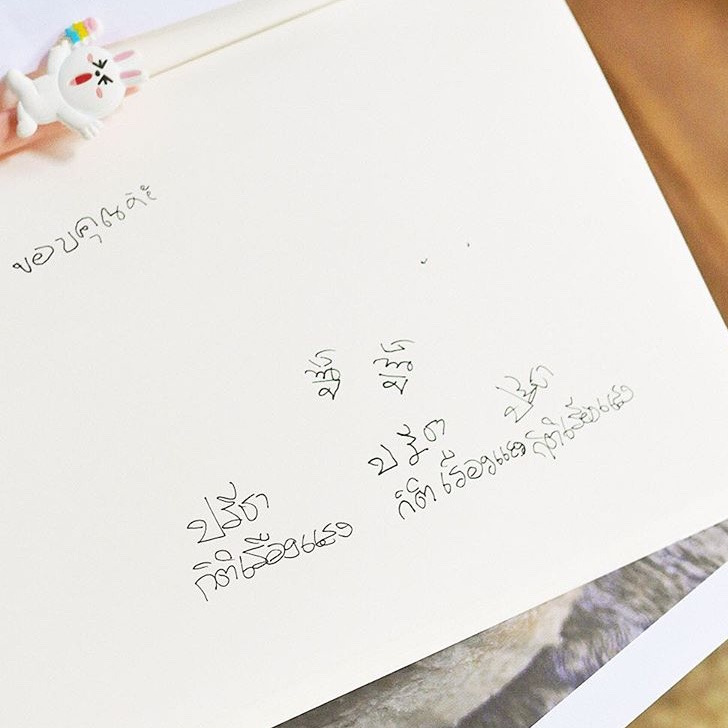 ขอบคุณค่ะ
ปรีชา
กิติเรืองแสง
ปรีชา
กิติเรืองแสง
ปรีชา
กิติเรืองแสง